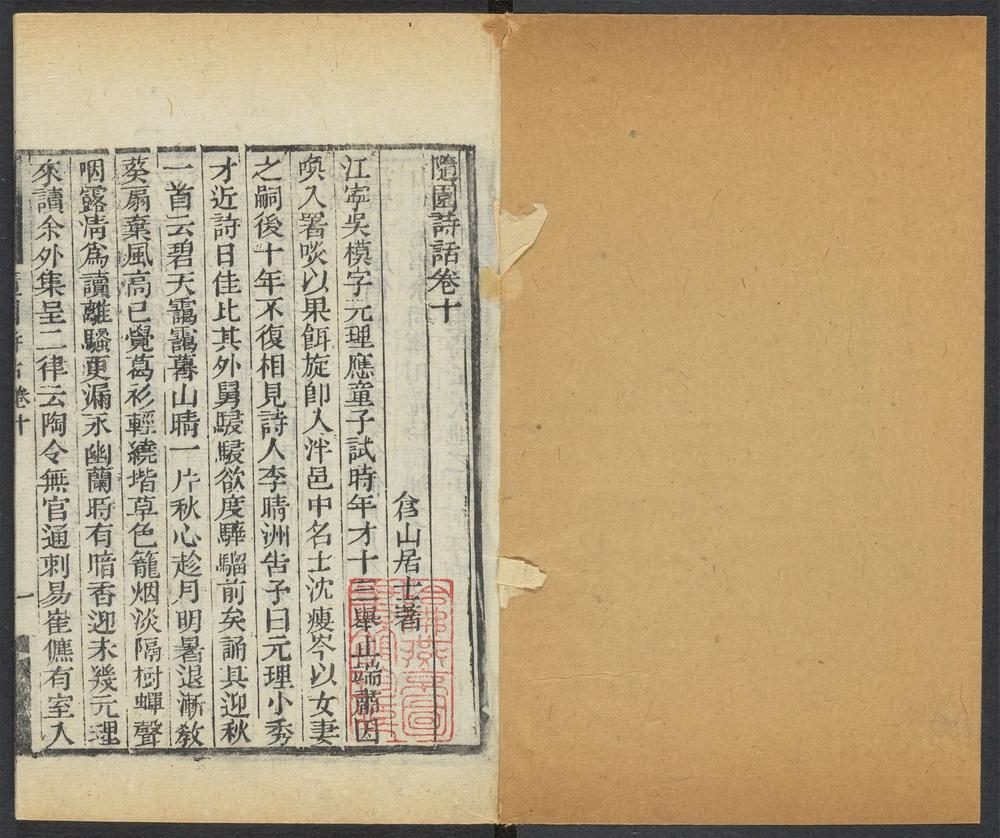 隨園詩話卷十
倉山居士著
江寧吳模字元理應童子試時年才十三舉止端肅因
喚入署啖以果餌旋卽入泮邑中名士沈瘦岑以女妻
之嗣後十年不復相見詩人李晴洲告予曰元理小秀
才近詩日佳比其外舅駸駸欲度驊騮前矣誦其迎秋
一首云碧天靄靄暮山晴一片秋心趁月明暑退漸敎
葵扇棄風高已覺葛衫輕繞堦草色籠烟淡隔樹蟬聲
咽露淸爲讀離騷更漏永幽蘭時有暗香迎未幾元理
來讀余外集呈二律云陶令無官通刺易崔儦有室入
卷十
一